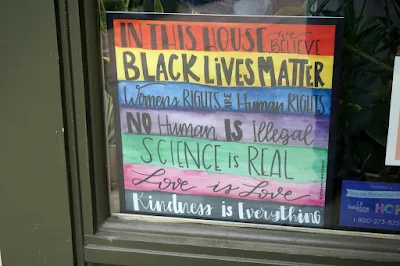 IN THIS HOUSE, we BELIEVE
BLACK LIVES MATTER
Womens RIGHTS ARE Human RIGHTS
NO Human IS Illegal
SCIENCE is REAL
Love is Love
Kindness is Everything
HOPE
1-800-273-8255